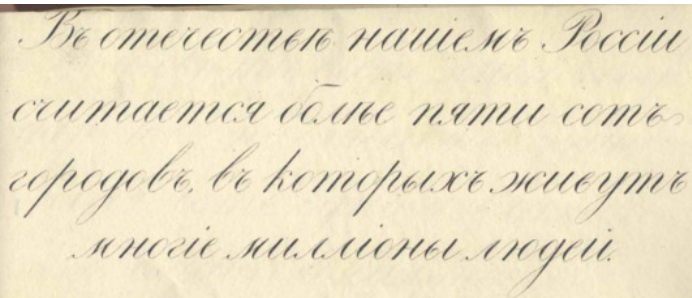 Въ отечествѣ нашемъ Россіи
считается болѣе пяти сотъ
городовъ, въ которыхъ живутъ
многіе милліоны людей.